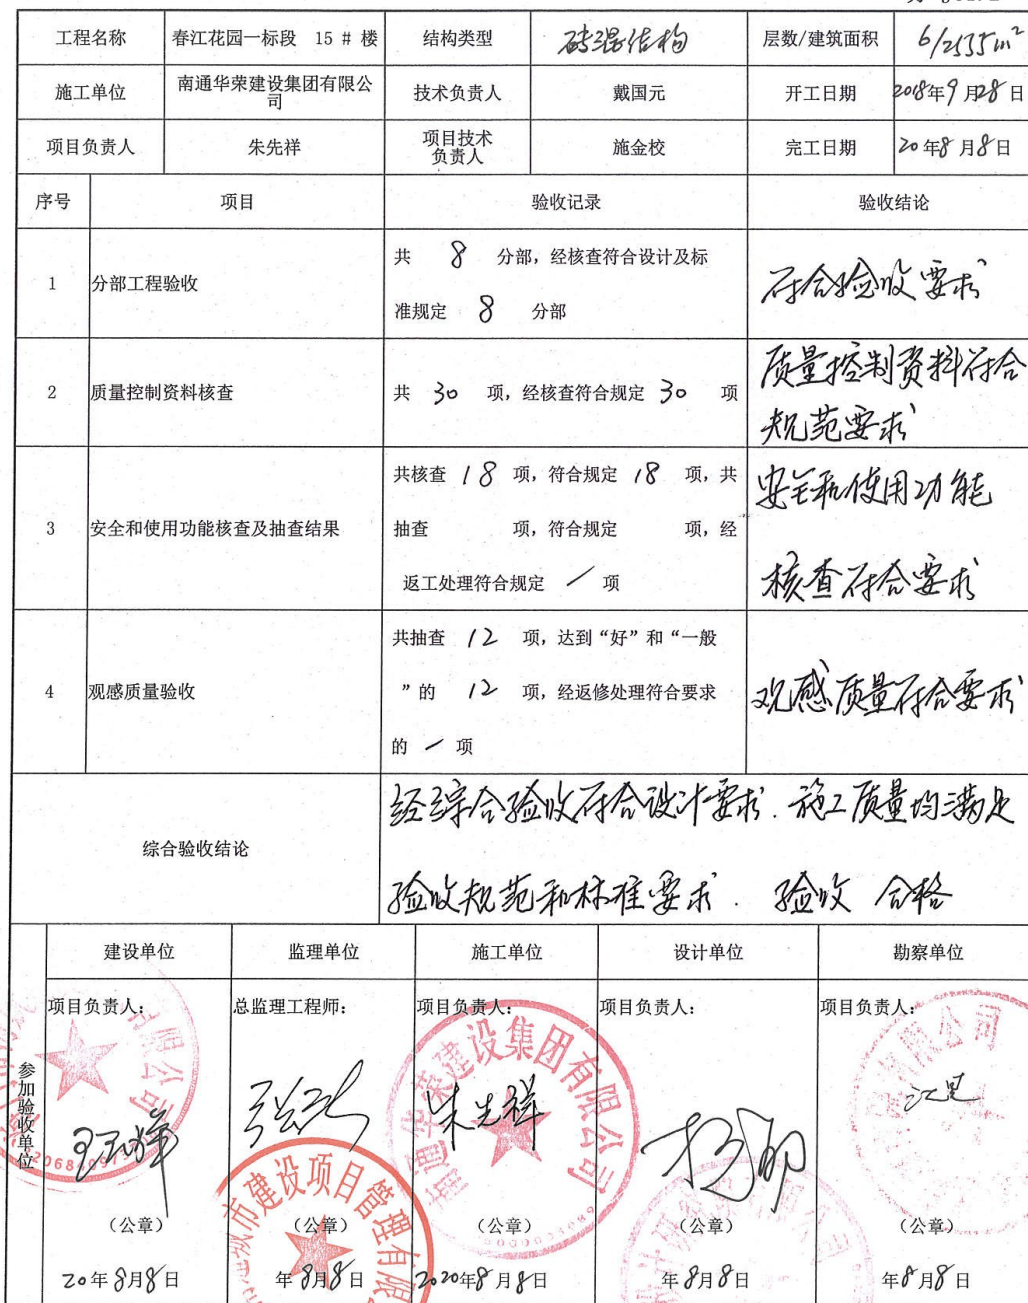 工程名称 春江花园一标段 15 # 楼 结构类型 砖混结构 层数/建筑面积 6/2535m²
施工单位 南通华荣建设集团有限公司 技术负责人 戴国元 开工日期 2018年9月28日
项目负责人 朱先祥 项目技术负责人 施金校 完工日期 20年8月8日
序号 项目 验收记录 验收结论
1 分部工程验收
共 8 分部，经核查符合设计及标
准规定 8 分部
符合验收要求
2 质量控制资料核查
共 30 项，经核查符合规定 30 项
质量控制资料符合
规范要求
3 安全和使用功能核查及抽查结果
共核查 18 项，符合规定 18 项，共
抽查 项，符合规定 项，经
返工处理符合规定 / 项
安全和使用功能
核查符合要求
4 观感质量验收
共抽查 12 项，达到“好”和“一般
”的 12 项，经返修处理符合要求
的 / 项
观感质量符合要求
综合验收结论
经综合验收符合设计要求.施工质量均满足
验收规范和标准要求. 验收 合格
参加验收单位
建设单位 监理单位 施工单位 设计单位 勘察单位
项目负责人： 总监理工程师： 项目负责人： 项目负责人： 项目负责人：
朱先祥
南通华荣建设集团有限公司
市建设项目管理有限
有限公司
（公章） （公章） （公章） （公章） （公章）
20年8月8日 年8月8日 2020年8月8日 年8月8日 年8月8日